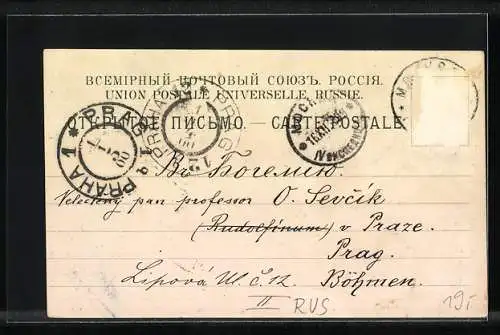 ВСЕМІРНЫЙ ПОЧТОВЫЙ СОЮЗЪ. РОССІЯ.
UNION POSTALE UNIVERSELLE. RUSSIE.
ОТКРЫТОЕ ПИСЬМО. — CARTE POSTALE
PRAHA 1
Въ Богемію.
Velectěný pan professor O. Sevčík
(Rudolfinum) v Praze.
Prag.
Lipová Ul. č. 12. Böhmen.
II
RUS